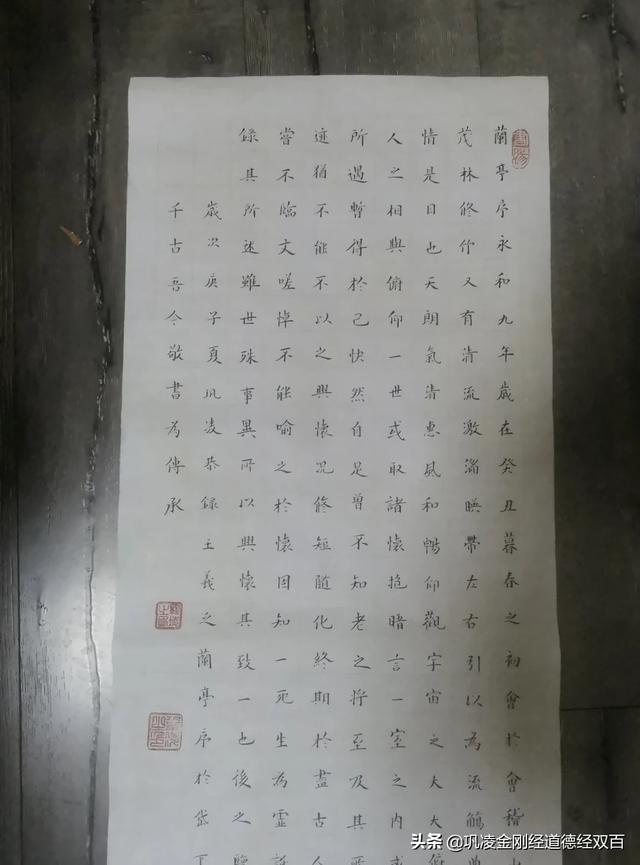 蘭亭序永和九年歲在癸丑暮春之初會於會稽山
茂林修竹又有清流激湍暎帶左右引以為流觴曲
情是日也天朗氣清惠風和暢仰觀宇宙之大
人之相與俯仰一世或取諸懷抱晤言一室之内或
所遇暫得於己快然自足曾不知老之将至及其所
迹猶不能不以之興懷况修短隨化終期於盡古人
嘗不臨文嗟悼不能喻之於懷固知一死生為虛誕
錄其所述雖世殊事異所以興懷其致一也後之
歲次庚子夏巩凌恭錄王羲之蘭亭序於岱下
千古吾今敬書為傳承
头条 @巩凌金刚经道德经双百